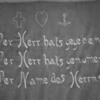 Der Herr hats gegeben
Der Herr hats genomen
Der Name des Herrn